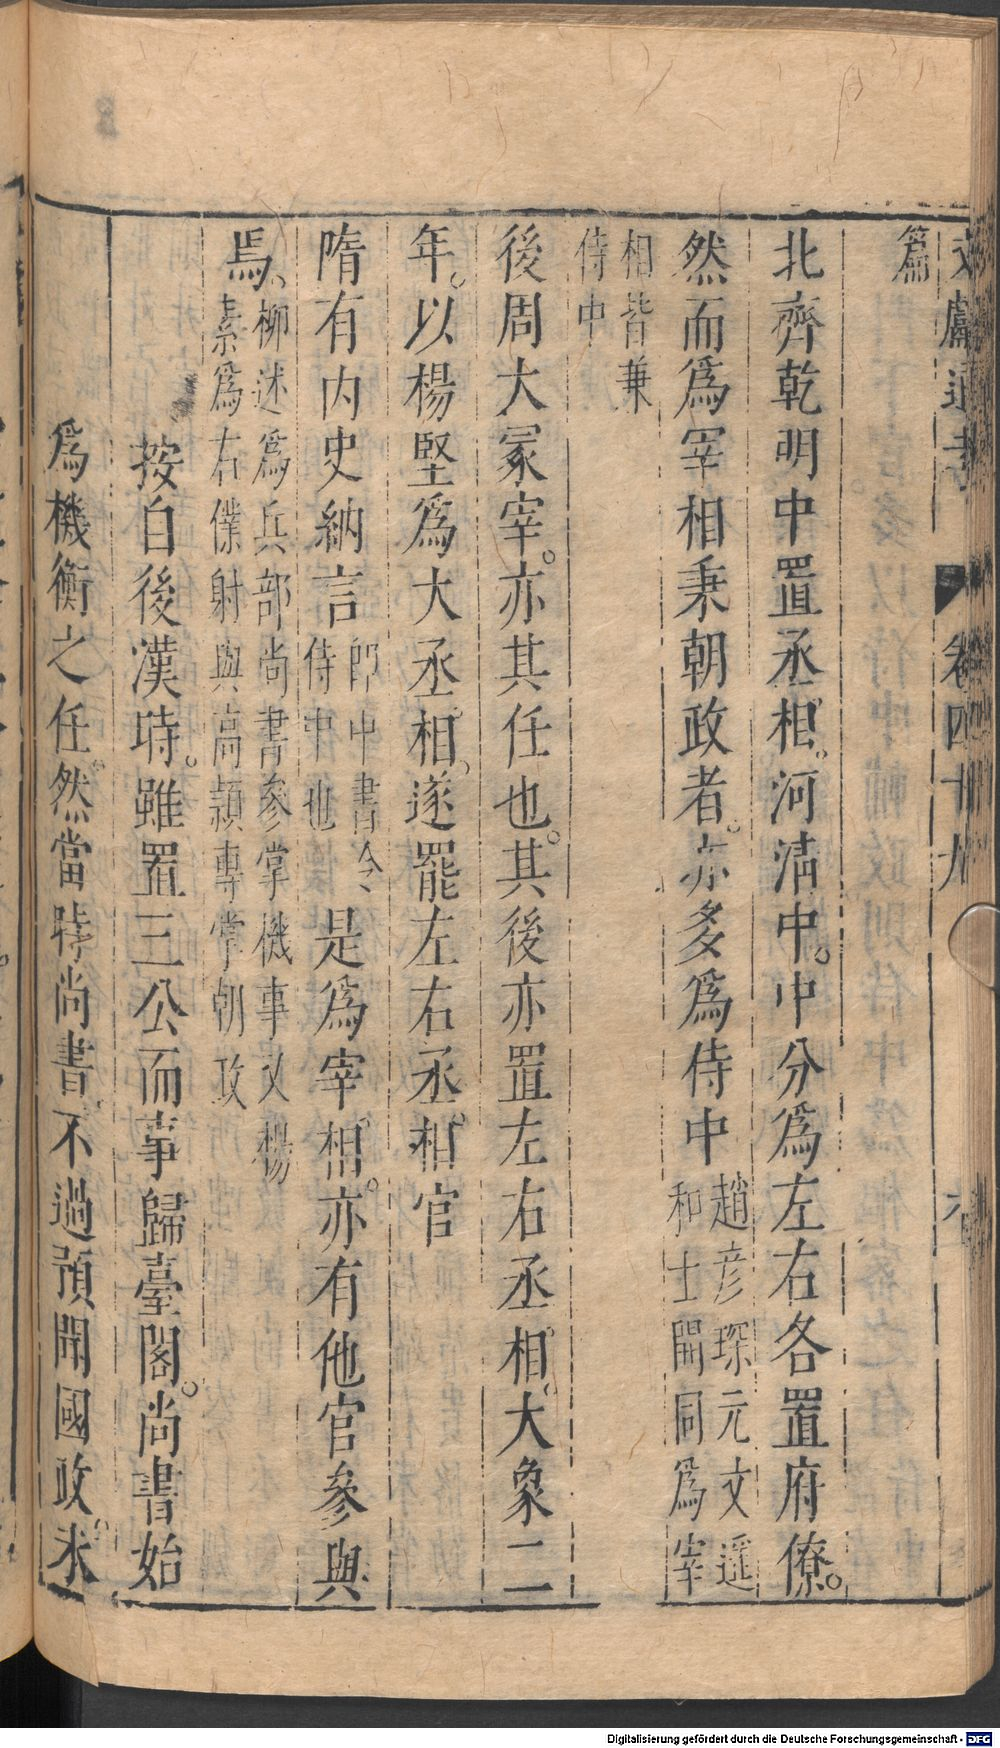 文獻通考 卷四十九
篇
北齊乾明中置丞相。河清中。中分爲左右各置府僚。
然而爲宰相秉朝政者。亦多爲侍中趙彦琛元文遥
和士開同爲宰
相皆兼
侍中
後周大冢宰。亦其任也。其後亦置左右丞相。大象二
年。以楊堅爲大丞相。遂罷左右丞相官
隋有内史納言即中書令
侍中也是爲宰相。亦有他官參與
焉、柳述爲兵部尚書參掌機事又楊
素爲右僕射與高頴專掌朝政
按自後漢時。雖置三公而事歸臺閣。尚書始
爲機衡之任。然當時尚書。不過預聞國政。未
Digitalisierung gefördert durch die Deutsche Forschungsgemeinschaft - DFG